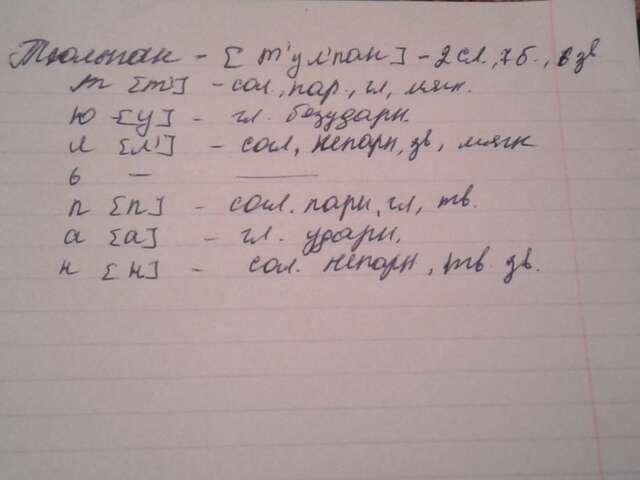 Тюльпан - [т'ул'пан] - 2сл., 7б., 6зв
т [т'] - сол., пар., гл, мягк.
ю [у] - гл. безударн.
л [л'] - согл, непарн, зв, мягк
ь — ———
п [п] - согл. парн, гл, тв.
а [а] - гл. ударн.
н [н] - согл. непарн, тв. зв.